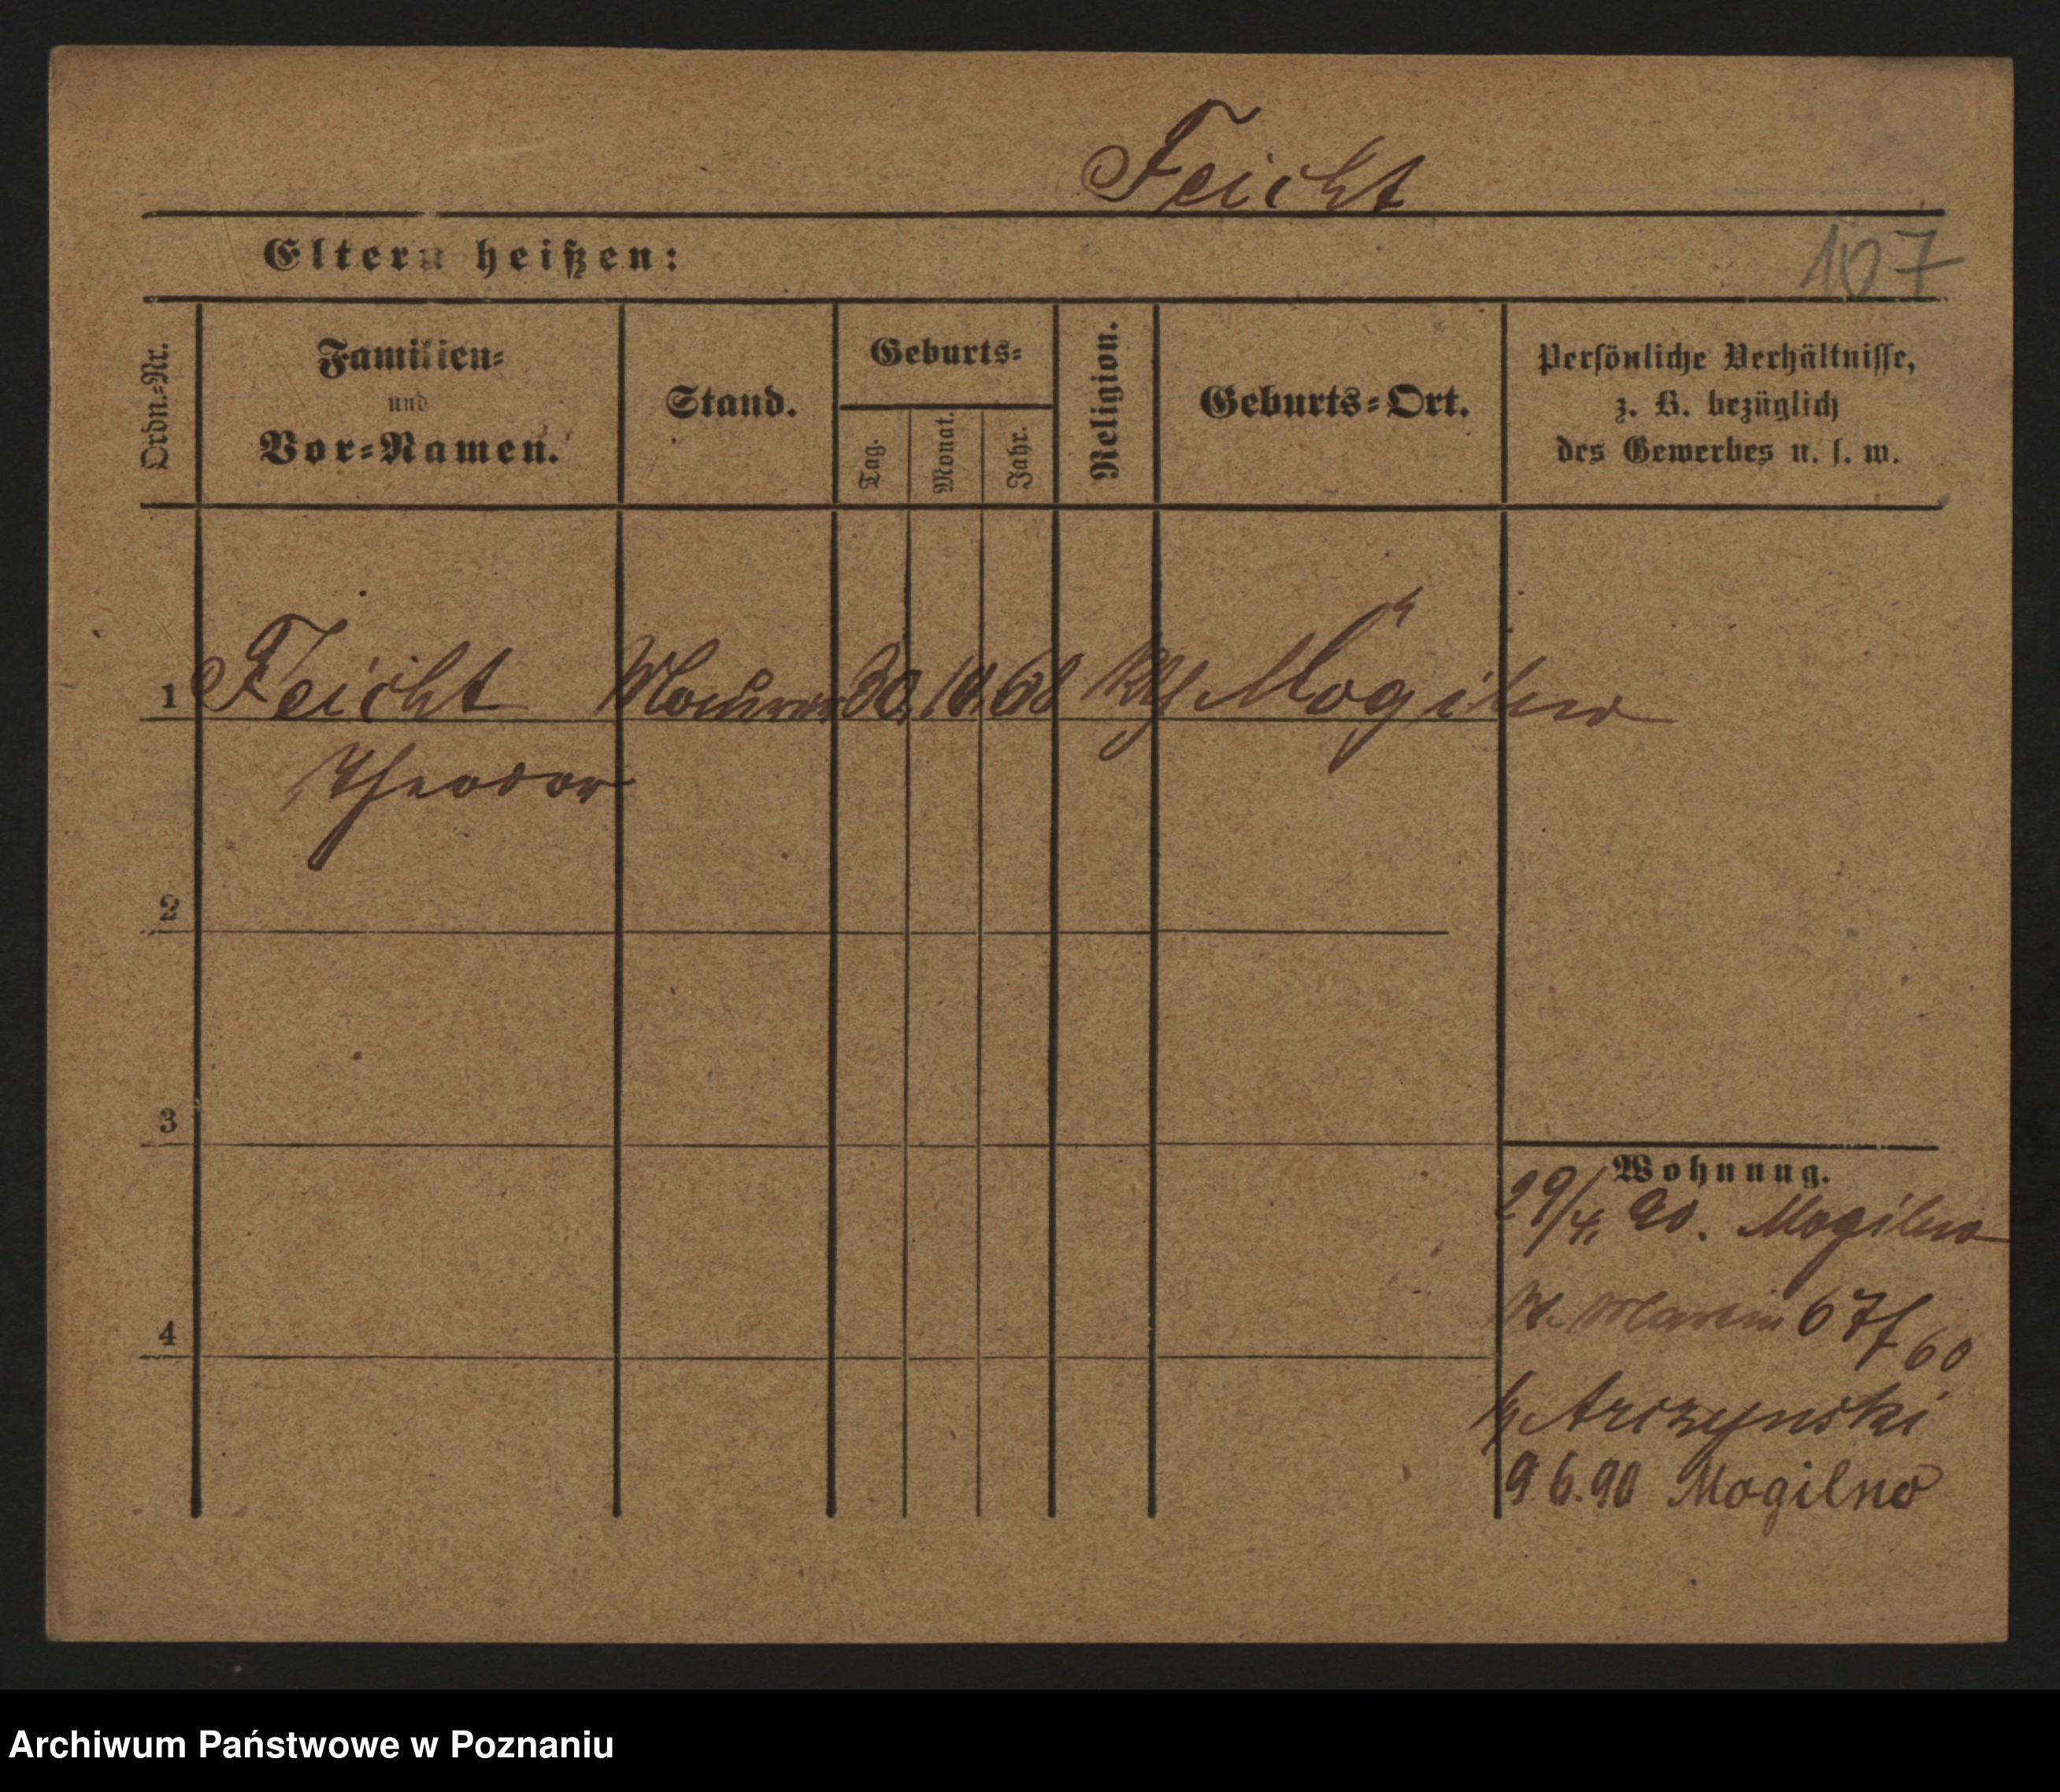 Feicht
Eltern heißen:
107
Ordn.-Nr.
Familien-
und
Vor-Namen.
Stand.
Geburts-
Tag.
Monat.
Jahr.
Religion.
Geburts-Ort.
Persönliche Verhältnisse,
z. B. bezüglich
des Gewerbes u. s. w.
1 Feicht Maurer 30. 10. 68 Mogilno
Theodor
2
3
4
Wohnung.
29/4. 90. Mogilno
St. Martin 67 f 60
Arczynski
9.6.90 Mogilno
Archiwum Państwowe w Poznaniu